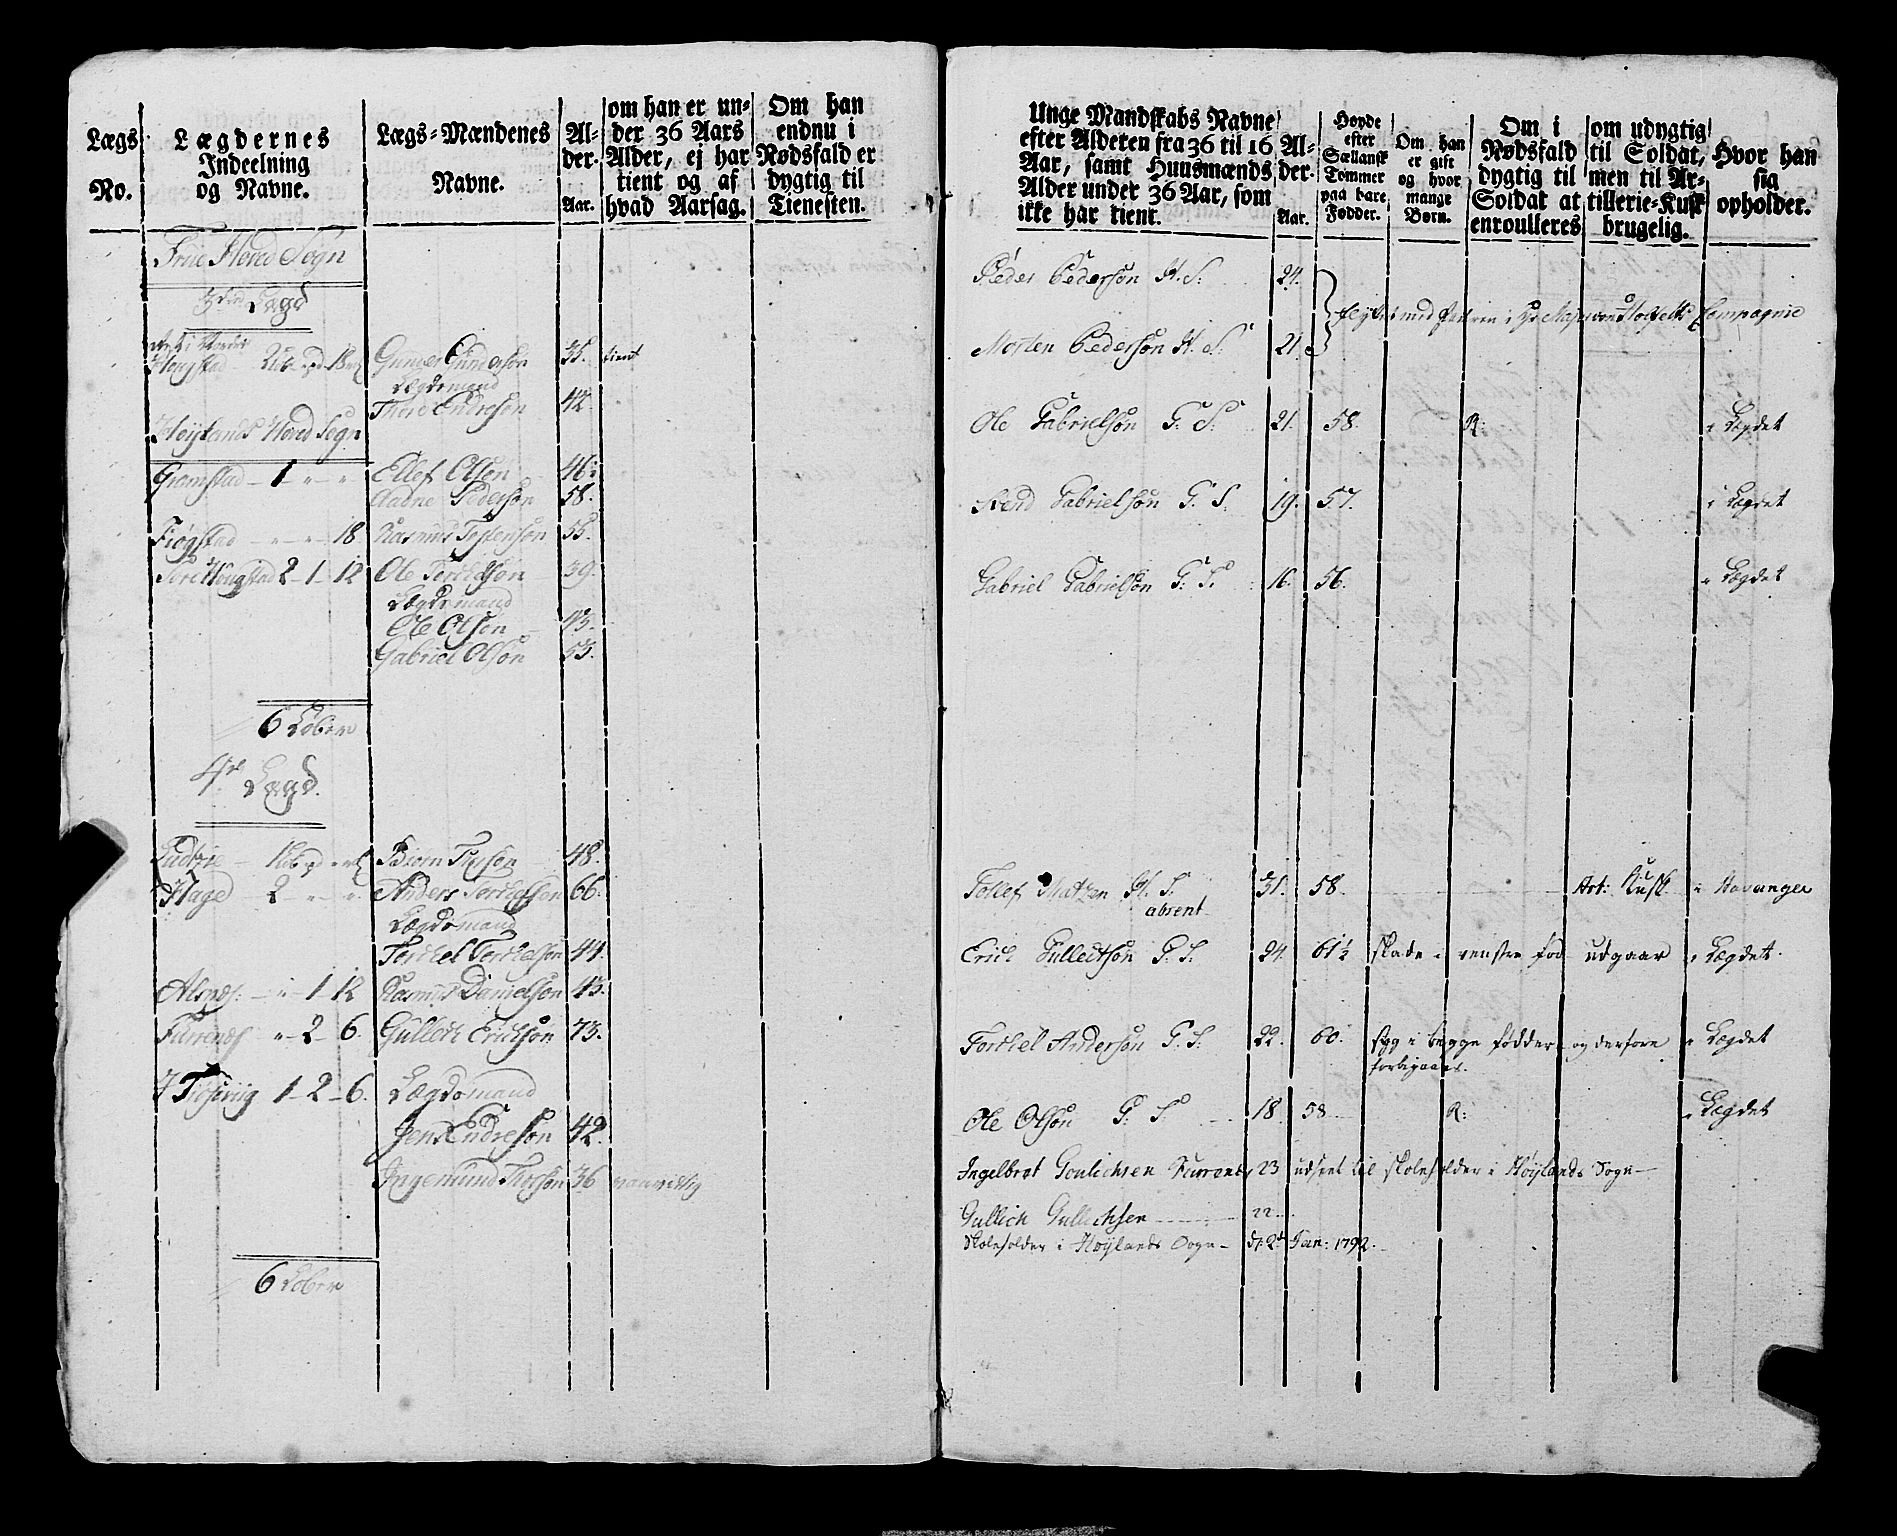 Lægs No.
Lægdernes Indeelning og Navne.
Lægs-Mændenes Navne.
Alder. Aar.
om han er under 36 Aars Alder, ej har tient og af hvad Aarsag.
Om han endnu i Nødsfald er dygtig til Tienesten.
Frue Hered Sogn
3die Lægd
Gunder Gunderson 35. tient
Lægdsmand
Thore Endreson 42.
Høylands Hered Sogn
Gramstad - 1 - " - " Ellef Olsen 46
Aadne Pederson 58.
Fiogstad - " - " - 18 Rasmus Tostenson 55.
Tore Hougstad 2 - 1 - 12 Ole Torchelson 39.
Lægdsmand
Ole Olson 43.
Gabriel Olson 53.
6 Løber
4de Lægd.
Biorn Thysen 48.
Hage 2 - " - " Anders Torchelson 66.
Lægdsmand
Torchel Torchelson 44.
Alsnæs: - " - 1 - 12 Rasmus Danielson 43.
Furrenes " - 2 - 6. Gullech Erichson 73.
1 - 2 - 6. Lægdsmand
Jens Endreson 42.
Ingemund Thorson 36 vanvittig
6 Løber
Unge Mandskabs Navne efter Alderen fra 36 til 16 Aar, samt Huusmænds Alder under 36 Aar, som ikke har tient.
Alder. Aar.
Høyde efter Sællansk Tommer paa bare Fødder.
Om han er gift og hvor mange Børn.
Om i Nødsfald dygtig til Soldat at enroulleres
om udygtig til Soldat, men til Artillerie-Kusk brugelig.
Hvor han sig opholder.
Peder Pederson H. S. 24.
flyttet med Faderen i Hr Major von Compagnie
Morten Pederson H. S. 21.
Ole Gabrielson G. S. 21. 58. R: i Lægdet
Svend Gabrielson G. S. 19. 57. i Lægdet
Gabriel Gabrielson G. S. 16. 56. i Lægdet
Tollef Matzen H. S. 31. 58. Art: Kusk i Stavanger
absent
Erich Gullechson G. S. 24. 61½ skade i venstre fod udgaar i Lægdet.
Torchel Anderson G. S. 22. 60. syg i begge fødder og derfore i Lægdet
forbigaaes.
Ole Olson G. S. 18. 58 R: i Lægdet
Ingelbret Goulichsen Furrenes 23 udseet til skoleholder i Høylands Sogn
Gullich Gullichsen 22
Skoleholder i Høylands Sogn - d: 2d Jan: 1792.